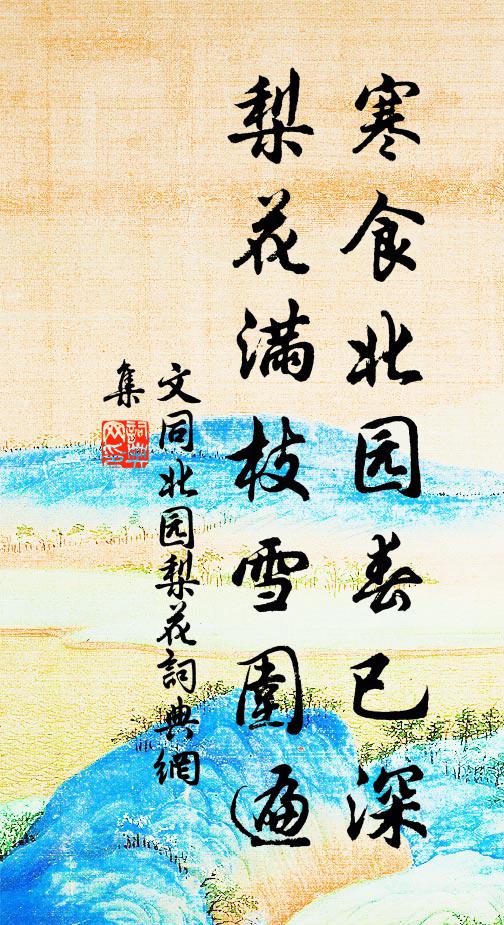 寒食北园春已深
梨花满枝雪圍遍
文同北园梨花詞典網
集